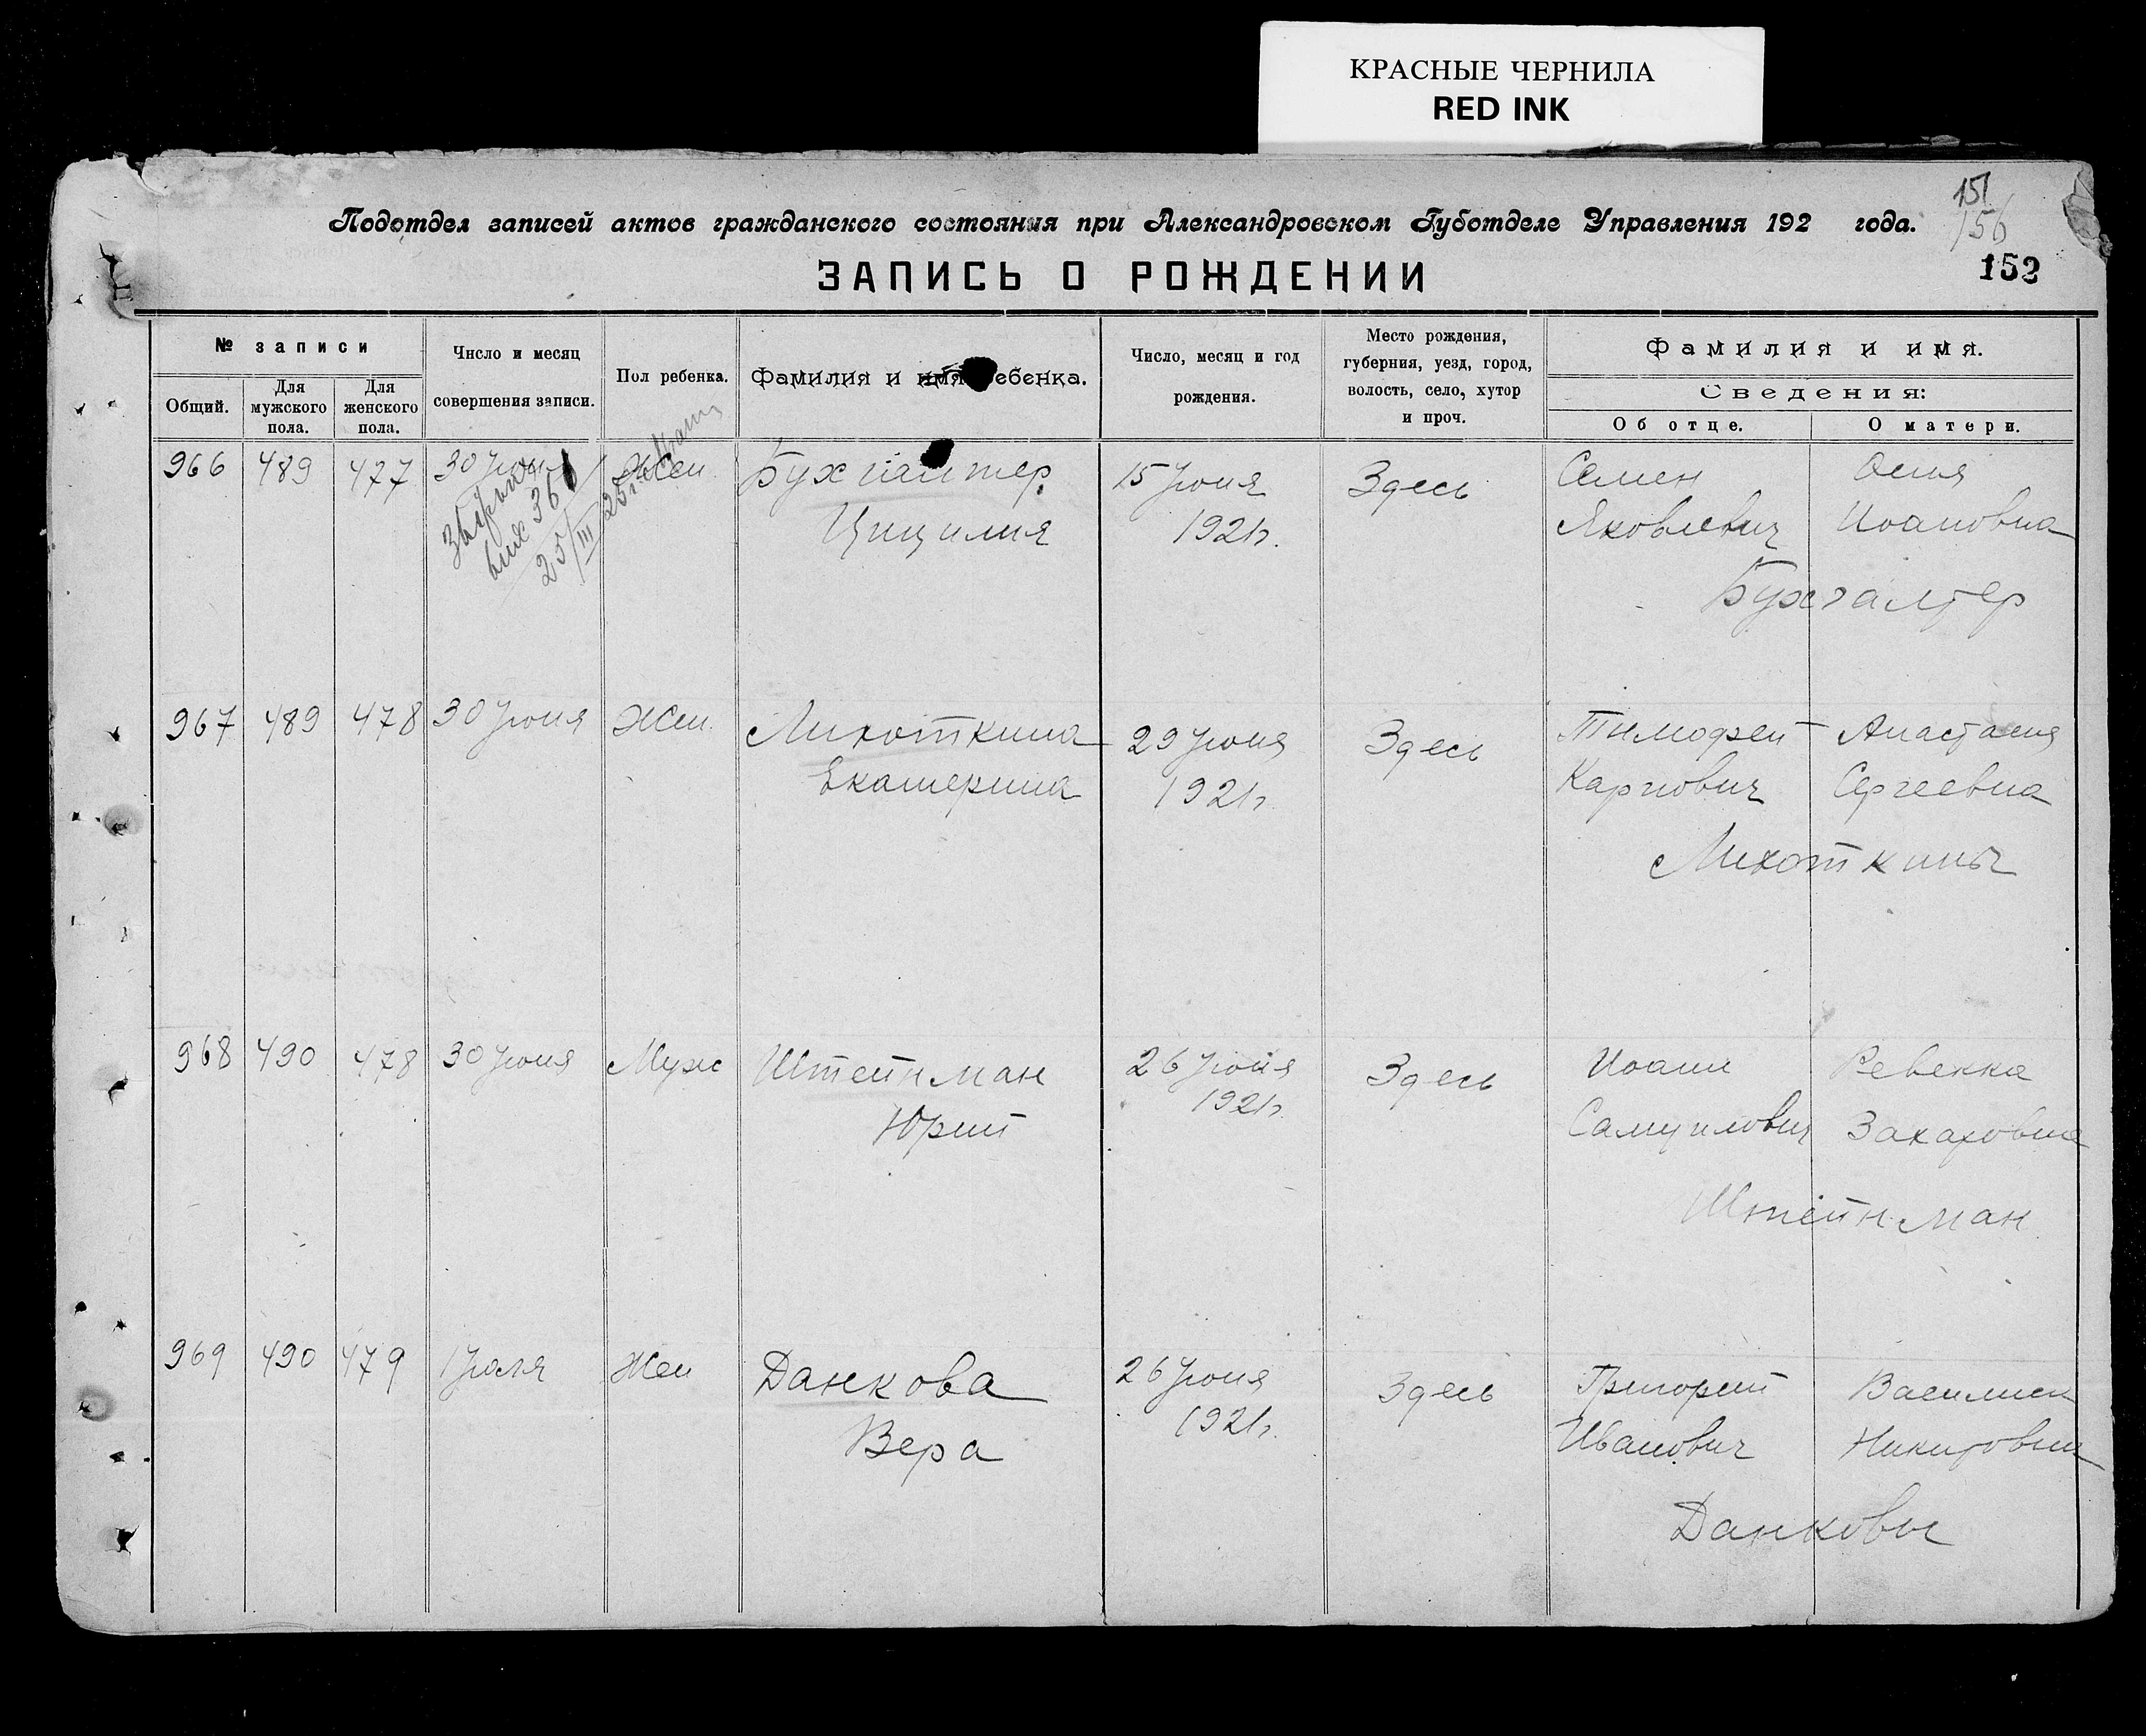 КРАСНЫЕ ЧЕРНИЛА
RED INK
151
156
Подотдел записей актов гражданского состояния при Александровском Губотделе Управления 192 года.
152
ЗАПИСЬ О РОЖДЕНИИ
№ записи
Общий.
Для мужского пола.
Для женского пола.
Число и месяц
совершения записи.
Пол ребенка.
Фамилия и имя ребенка.
Число, месяц и год
рождения.
Место рождения,
губерния, уезд, город,
волость, село, хутор
и проч.
Фамилия и имя.
Сведения:
Об отце.
О матери.
966 489 477 30 Июня Жен. Бухгалтер 15 Июня Здесь Семен Осия
Цицилия 1921г. Яковлевич Иоановна
360
25/III 25г.
Бухгалтер
967 489 478 30 Июня Жен. Лихоткина 29 Июня Здесь Тимофей Анастасия
Екатерина 1921г. Карпович Сергеевна
Лихоткины
968 490 478 30 Июня Муж Штейнман 26 Июня Здесь Иоанн Ревекка
Юрий 1921г. Самуилович Захаровна
Штейнман
969 490 479 1 Июля Жен Данкова 26 Июня Здесь Григорий Василиса
Вера 1921г. Иванович Никитовна
Данковы